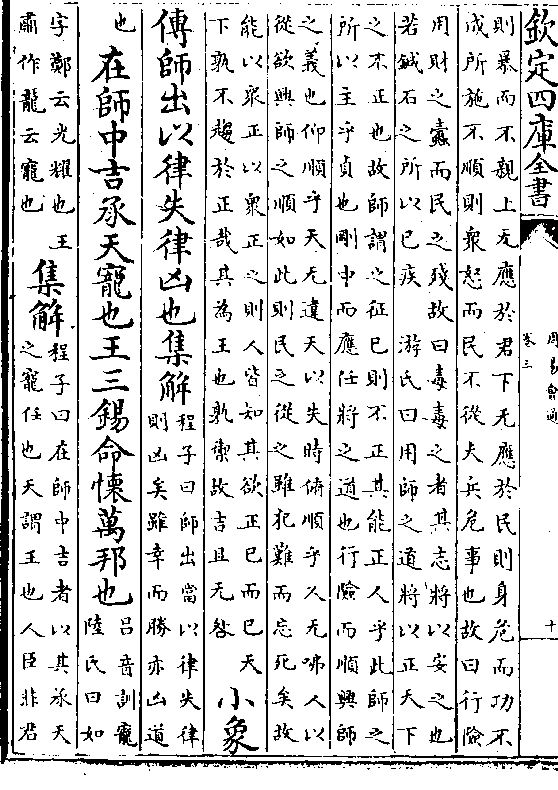 欽定四庫全書
周易會通
卷三
十
則暴而不親上无應於君下无應於民則身危而功不
成所施不順則衆怒而民不從夫兵危事也故曰行險
用財之蠹而民之殘故曰毒毒之者其志將以安之也
若鍼石之所以已疾　游氏曰用師之道將以正天下
之不正也故師謂之征已則不正其能正人乎此師之
所以主乎貞也剛中而應任將之道也行險而順興師
之義也仰順乎天无違天以失時俯順乎人无咈人以
從欲興師之順如此則民之從之雖犯難而忘死矣故
能以衆正以衆正之則人皆知其欲正已而已天
下孰不趨於正哉其為王也孰禦故吉且无咎
小象
傳師出以律失律凶也集解
程子曰師出當以律失律
則凶矣雖幸而勝亦凶道
也
在師中吉承天寵也王三錫命懷萬邦也
呂音訓寵
陸氏曰如
字鄭云光耀也王
肅作龍云寵也
集解
程子曰在師中吉者以其承天
之寵任也天謂王也人臣非君